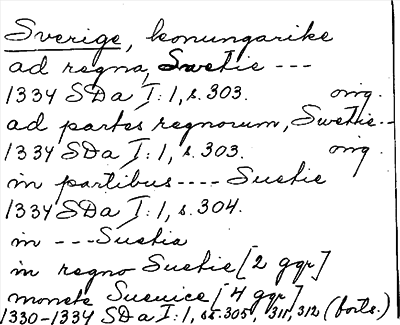 Sverige, konungarike
ad regna, Swetie ---
1334 SDa I:1, s. 303. orig.
ad partes regnorum, Swetie--
1334 SDa I:1, s. 303. orig.
in partibus ---- Suetie
1334 SDa I:1, s. 304.
in --- Suetia
in regno Suetie [2 ggr]
monete Suenice [4 ggr]
1330-1334 SDa I:1, ss. 305, 311, 312 (forts.)